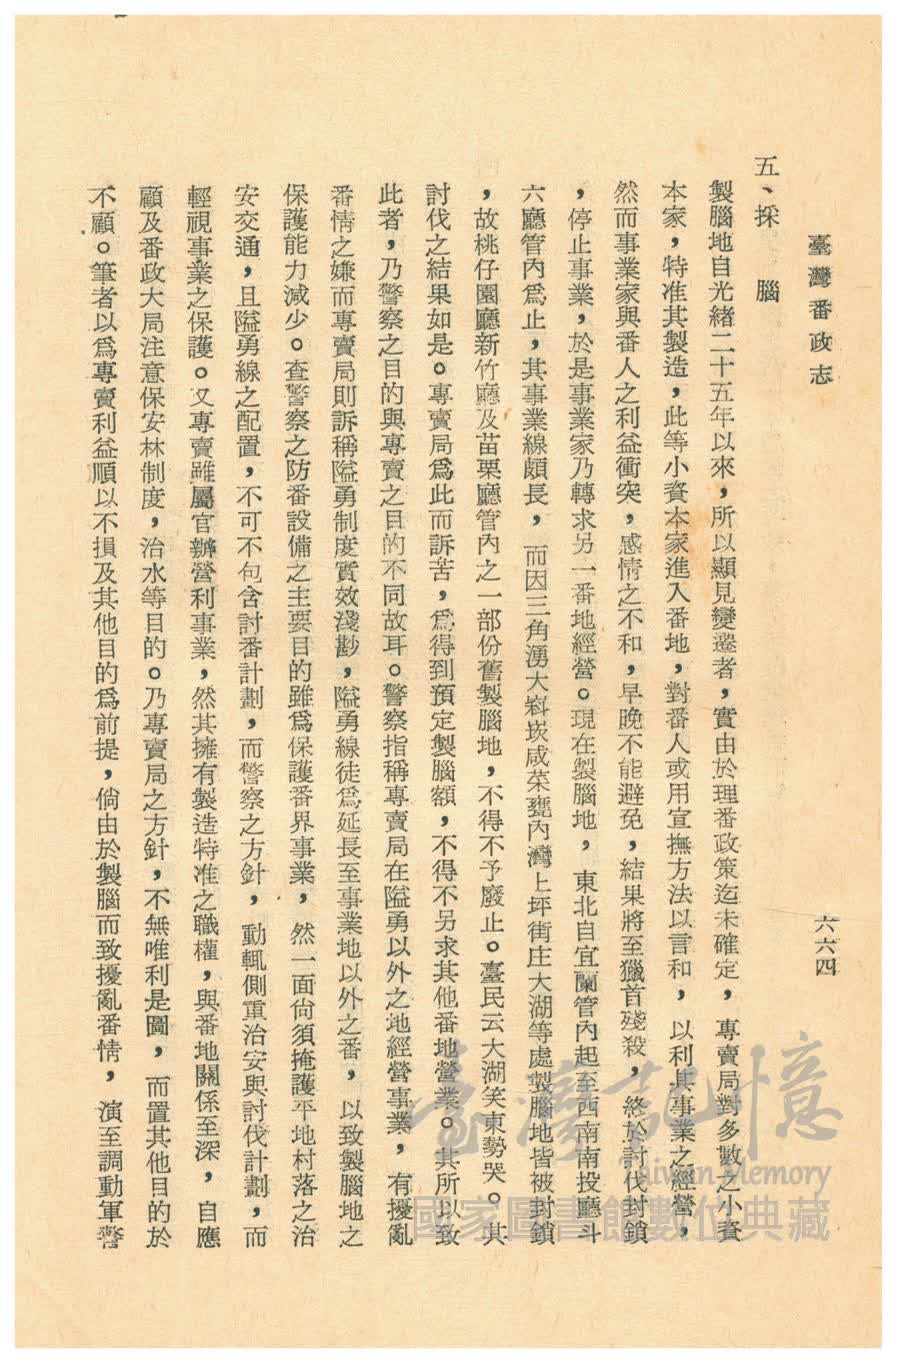 臺灣番政志
六六四
五、採　腦
製腦地自光緒二十五年以來，所以顯見變遷者，實由於理番政策迄未確定，專賣局對多數之小資
本家，特准其製造，此等小資本家進入番地，對番人或用宣撫方法以言和，以利其事業之經營，
然而事業家與番人之利益衝突，感情之不和，早晚不能避免，結果將至獵首殘殺，終於討伐封鎖
，停止事業，於是事業家乃轉求另一番地經營。現在製腦地，東北自宜蘭管內起至西南南投廳斗
六廳管內爲止，其事業線頗長，而因三角湧大嵙崁咸菜甕內灣上坪街庄大湖等處製腦地皆被封鎖
，故桃仔園廳新竹廳及苗栗廳管內之一部份舊製腦地，不得不予廢止。臺民云大湖笑東勢哭。其
討伐之結果如是。專賣局爲此而訴苦，爲得到預定製腦額，不得不另求其他番地營業。其所以致
此者，乃警察之目的與專賣之目的不同故耳。警察指稱專賣局在隘勇以外之地經營事業，有擾亂
番情之嫌而專賣局則訴稱隘勇制度實效淺尠，隘勇線徒爲延長至事業地以外之番，以致製腦地之
保護能力減少。查警察之防番設備之主要目的雖爲保護番界事業，然一面尙須掩護平地村落之治
安交通，且隘勇線之配置，不可不包含討番計劃，而警察之方針，動輒側重治安與討伐計劃，而
輕視事業之保護。又專賣雖屬官辦營利事業，然其擁有製造特准之職權，與番地關係至深，自應
顧及番政大局注意保安林制度，治水等目的。乃專賣局之方針，不無唯利是圖，而置其他目的於
不顧。筆者以爲專賣利益順以不損及其他目的爲前提，倘由於製腦而致擾亂番情，演至調動軍警
臺灣記憶
Taiwan Memory
國家圖書館數位典藏